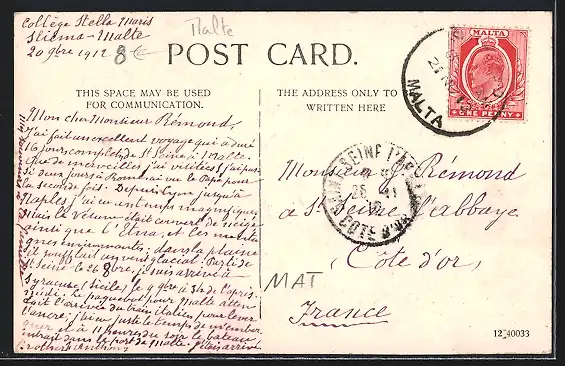 Collège Stella Maris
Sliema - Malte
20 9bre 1912
8€
Malte
POST CARD.
THIS SPACE MAY BE USED
FOR COMMUNICATION.
THE ADDRESS ONLY TO
WRITTEN HERE
MALTA
ONE PENNY
MALTA
Mon cher Monsieur Rémond,
J'ai fait un excellent voyage qui a duré
16 jours complets, de St Seine à Malte.
que de merveilles j'ai visitées! j'ai passé
deux jours à Rome, ai vu le Pape pour
la seconde fois. Depuis Lyon jusqu'à
Naples, j'ai eu un temps magnifique,
Mais le Vésuve était couvert de neige
ainsi que l'Etna, et les monta
gnes environnantes; dans la plaine
il soufflait un vent glacial. Parti de
St Seine le 26 8bre, je suis arrivé à
Syracuse (Sicile) le 9 9bre à 3h de l'après
midi. Le paquebot pour Malte atten
dait l'arrivée du train italien pour lever
l'ancre; j'ai eu juste le temps de m'embar
quer et à 11 heures du soir le bateau
entrait dans le port de Malte. J'étais arrivé
Brother Anthony
Monsieur Rémond
à St Seine l'abbaye
Côte d'or,
France
SEINE L'AB
26 11
12
CÔTE D'OR
MAT
12_40033